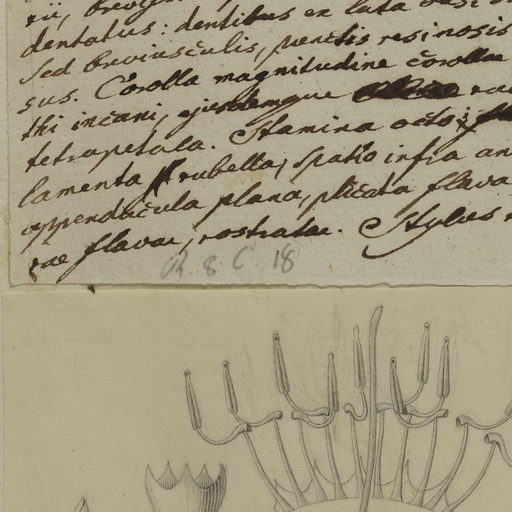 dentatus: dentibus ex lata basi
sed breviusculis, punctis resinosis
sus. Corolla magnitudine corollae
thi incani, ejusdemque
tetrapetala. Stamina octo;
lamenta rubella; spatio infra an
appendacula plana, plicata flava
rae flavae, rostratae. Stylus
R. 8. C. 18